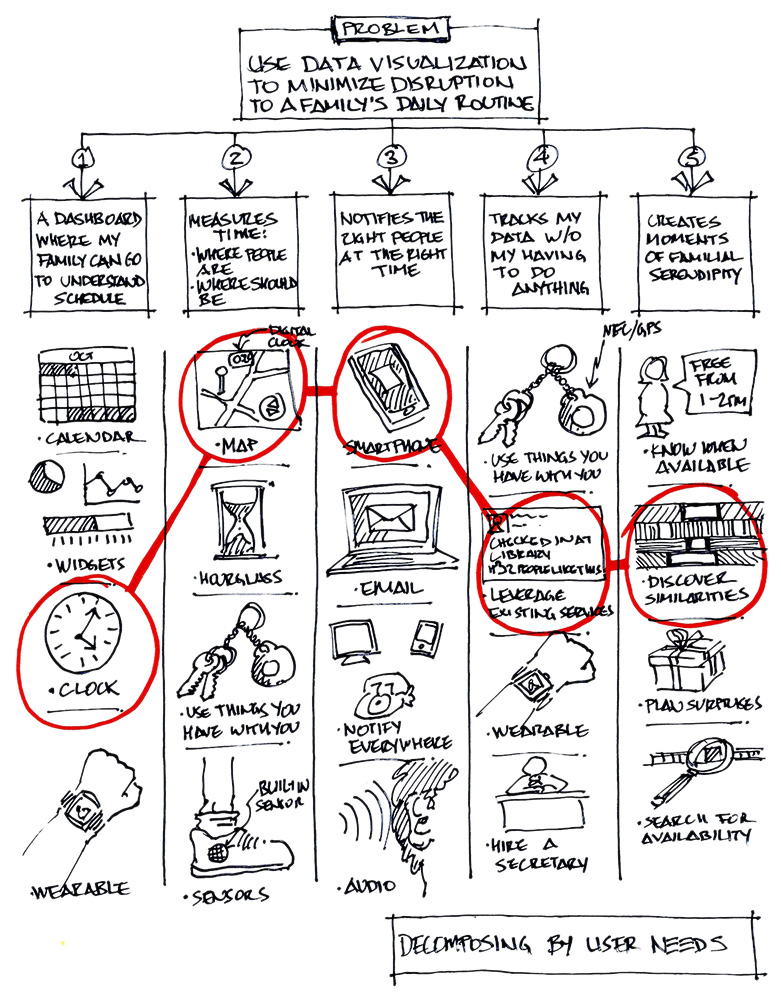 PROBLEM
USE DATA VISUALIZATION
TO MINIMIZE DISRUPTION
TO A FAMILY'S DAILY ROUTINE
1
2
3
4
5
A DASHBOARD
WHERE MY
FAMILY CAN GO
TO UNDERSTAND
SCHEDULE
MEASURES
TIME:
• WHERE PEOPLE
ARE
• WHERE SHOULD
BE
NOTIFIES THE
RIGHT PEOPLE
AT THE RIGHT
TIME
TRACKS MY
DATA W/O
MY HAVING
TO DO
ANYTHING
CREATES
MOMENTS
OF FAMILIAL
SERENDIPITY
OCT
• CALENDAR
• WIDGETS
• CLOCK
• WEARABLE
DIGITAL
CLOCK
• MAP
• HOURGLASS
• USE THINGS YOU
HAVE WITH YOU
BUILT IN
SENSOR
• SENSORS
• SMARTPHONE
• EMAIL
• NOTIFY
EVERYWHERE
• AUDIO
NFC/GPS
• USE THINGS YOU
HAVE WITH YOU
CHECKED IN AT
LIBRARY
32 PEOPLE LIKE THIS
• LEVERAGE
EXISTING SERVICES
• WEARABLE
• HIRE A
SECRETARY
FREE
FROM
1-2PM
• KNOW WHEN
AVAILABLE
• DISCOVER
SIMILARITIES
• PLAN SURPRISES
• SEARCH FOR
AVAILABILITY
DECOMPOSING BY USER NEEDS